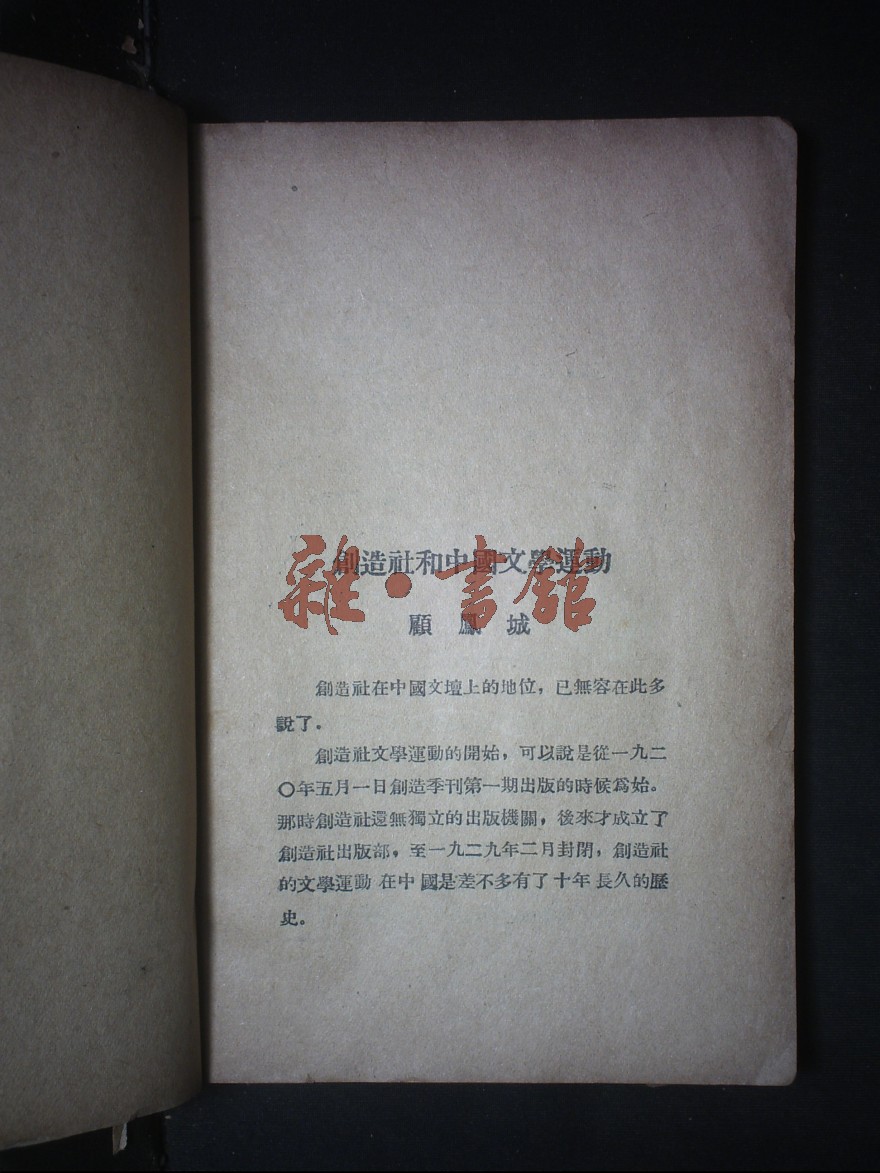 創造社和中國文學運動
雜·書館
顧鳳城
創造社在中國文壇上的地位，已無容在此多
說了。
創造社文學運動的開始，可以說是從一九二
〇年五月一日創造季刊第一期出版的時候爲始。
那時創造社還無獨立的出版機關，後來才成立了
創造社出版部，至一九二九年二月封閉，創造社
的文學運動在中國是差不多有了十年長久的歷
史。